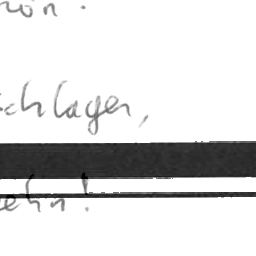 nön.
chlagen,
ehn!